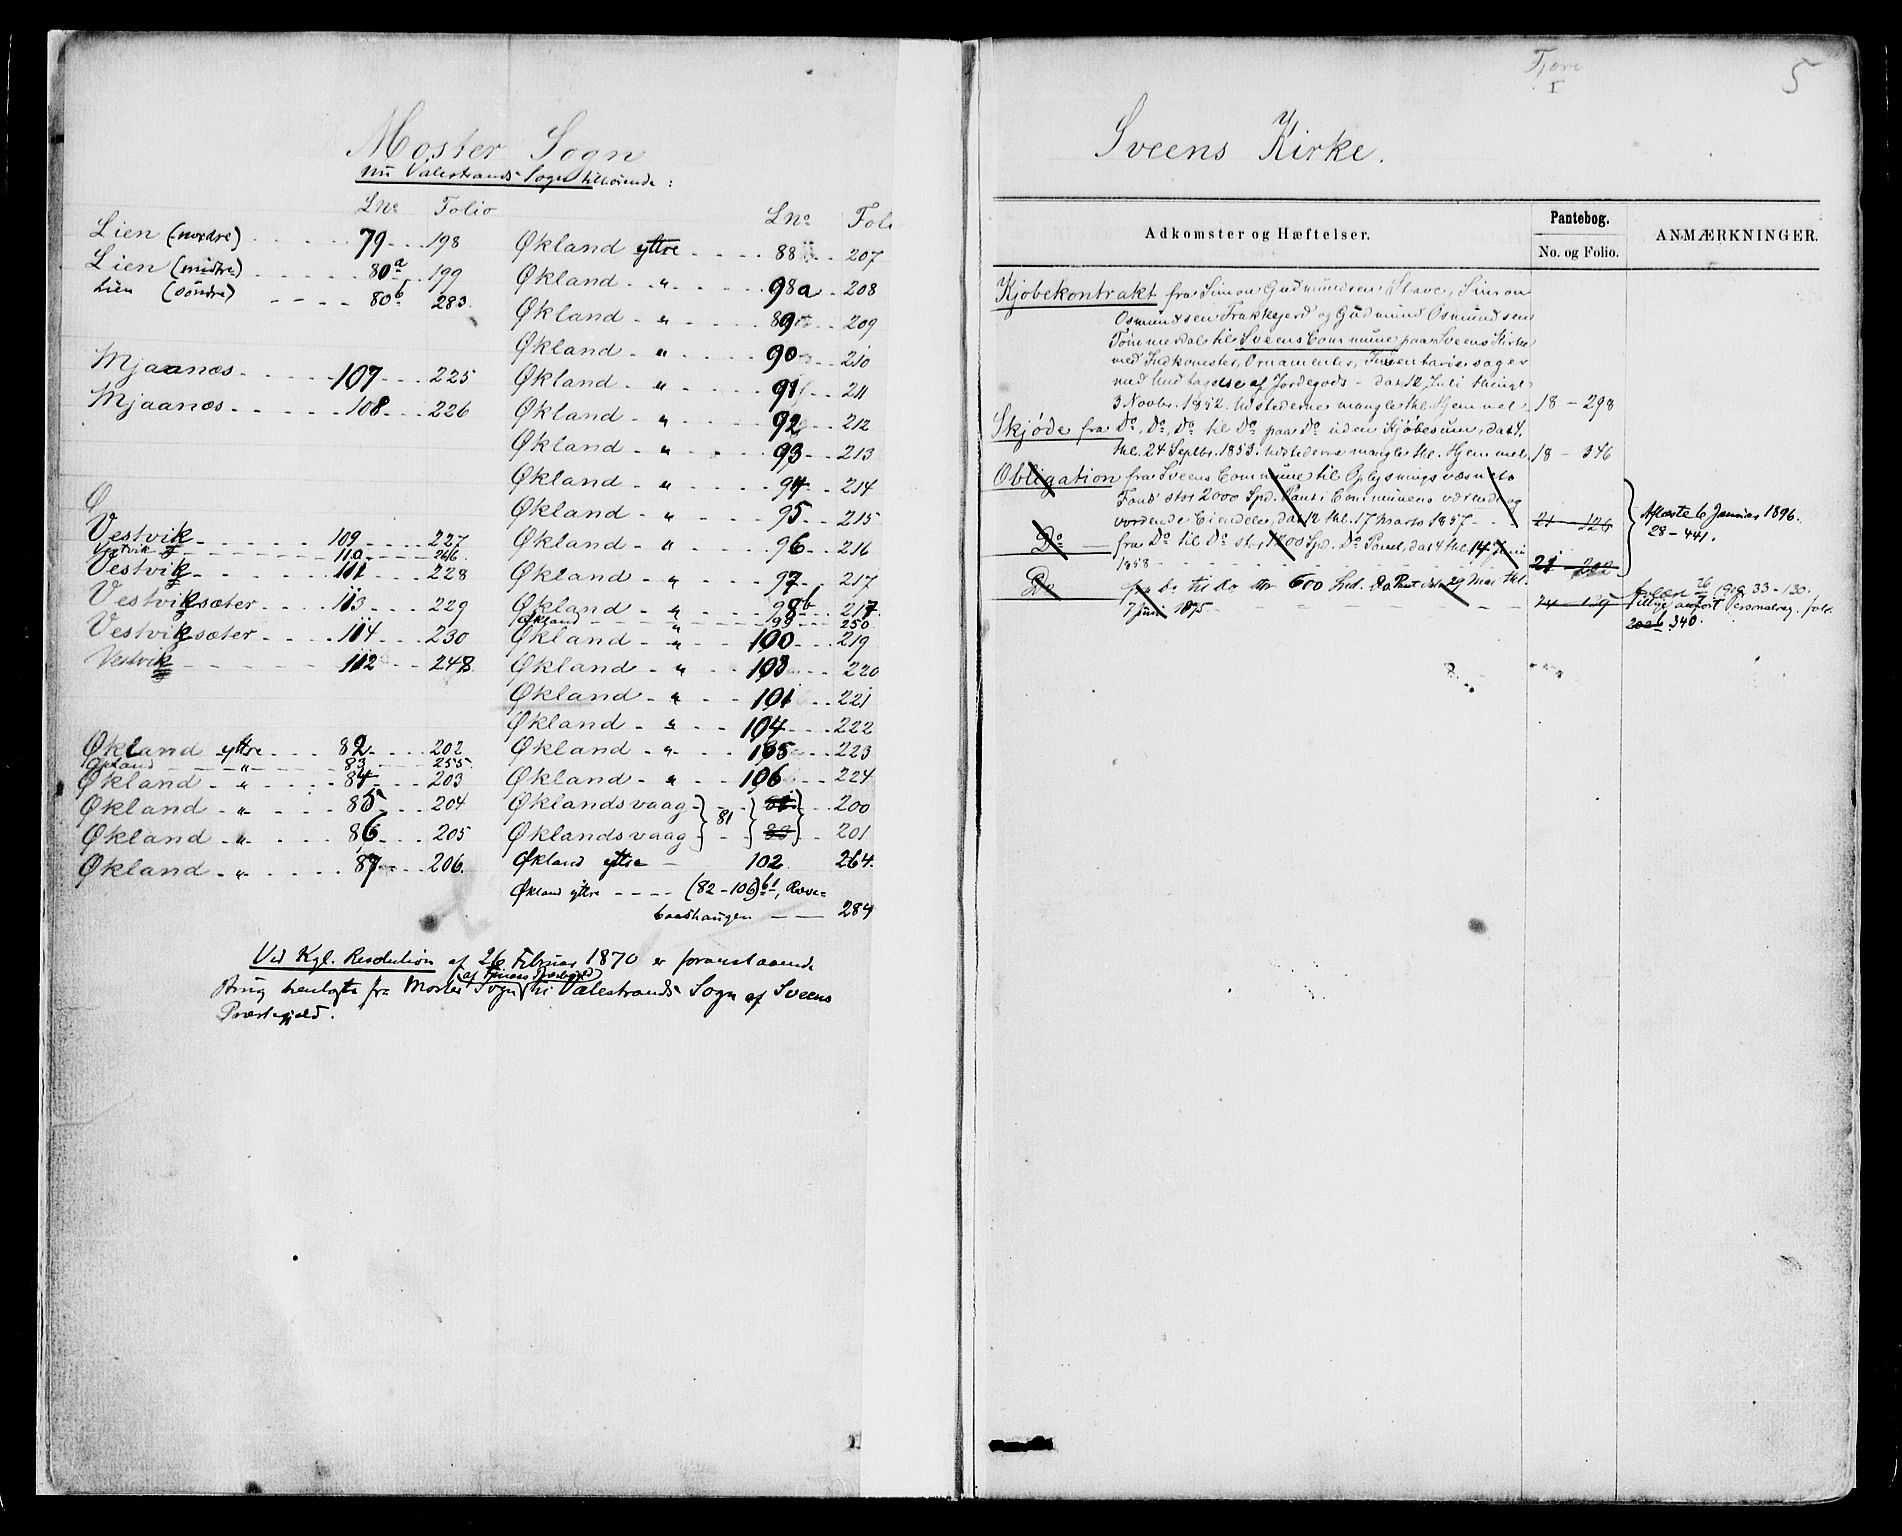 Moster Sogn
nu Valestrands Sogn tilhørende:
Lno Folio
Lien (nordre) 79 198
Lien (midtre) 80a 199
Lien (søndre) 80b 283.
Mjaanæs 107 225
Mjaanæs 108 226
Vestvik 109 227
Vestvik 110 246
Vestvik 111 228
Vestviksæter 113 229
Vestviksæter 114 230
Vestvik 112 248
Økland yttre 82 202
Økland " 83 255
Økland " 84 203
Økland " 85 204
Økland " 86 205
Økland " 87 206.
Lno Foli
Økland yttre 88 207
Økland " 98a 208
Økland " 89 209
Økland " 90 210
Økland " 91 211
Økland " 92 212
Økland " 93 213
Økland " 94 214
Økland " 95 215
Økland " 96 216
Økland " 97 217
Økland " 98b 217
Økland " 99 250
Økland " 100 219
Økland " 103 220
Økland " 101 221
Økland " 104 222
Økland " 105 223
Økland " 106 224
Øklandsvaag 81 200
Øklandsvaag 201
Økland yttre 102 264.
Økland yttre (82-106) b1, Ræve=
baashaugen 284
Ved Kgl. Resolution af 26 Februar 1870 er foranstaaende
(af Finaas Præstegjeld)
Brug henlagte fra Moster Sogn til Valestrands Sogn af Sveens
Præstegjeld.
5
I
Sveens Kirke.
Adkomster og Hæftelser.
Pantebog.
No. og Folio.
ANMÆRKNINGER.
Kjøbekontrakt fra Simon Gudmundsen Stave, Simon
Osmundsen Frakkjerd og Gudmund Osmundsen
Tømmerdal til Sveens Commune paa Sveens Kirke
med Indkomster, Ornamenter, Inventariesager
med Undtagelse af Jordegods - dat 12 Juli thingl.
3 Novbr. 1852. Udstederne mangle thl. Hjemmel. 18 - 298
Skjøde fra Do, Do, Do til Do paa Do uden Kjøbesum, dat 4,
thl. 24 Septbr. 1853. Udstederne mangle thl. Hjemmel. 18 - 346
Obligation fra Sveens Commune til Oplysningsvæsenets
Fond stor 2000 Spd. Pant i Communens værende og
vordende Eiendele, dat 12 thl. 17 Marts 1857 - 21 - 126
Do fra Do til Do stor 1200 Spd. Do Pant, dat 4 thl. 14 Juni
1858 - 21 - 202
Do fra do til do stor 600 Spd. Do Pant dat 29 Mai thl.
7 Juni 1875 - 24 - 129
Aflæste 6 Januar 1896.
28 - 441.
Aflæst 26/7 1909 33-130.
Tillige anført Personalreg. fol.
340.